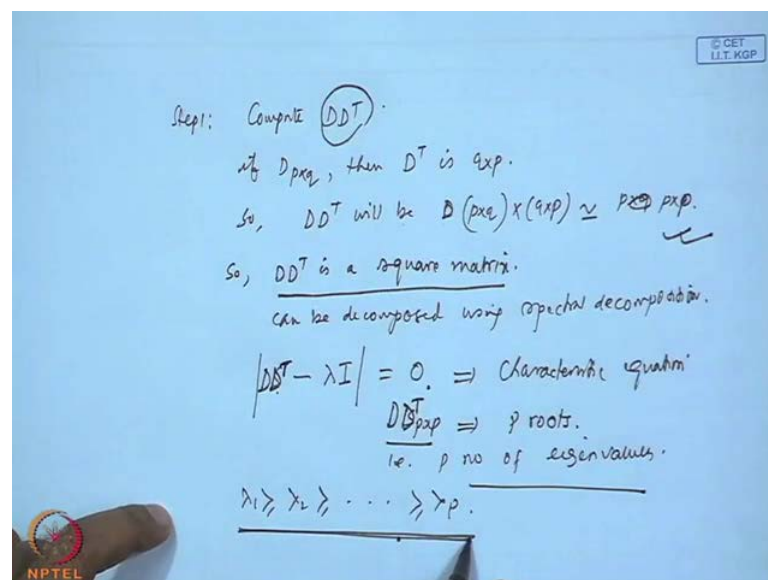 © CET
I.I.T. KGP
Step1: Compute DDᵀ.
if D p×q, then Dᵀ is q×p.
So, DDᵀ will be D (p×q) × (q×p) ≃ p×p.
So, DDᵀ is a square matrix.
can be decomposed using spectral decomposition.
|DDᵀ − λI| = 0. ⇒ Characteristic equation
DDᵀ p×p ⇒ p roots.
i.e. p no of eigenvalues.
λ₁ ≥ λ₂ ≥ · · · ≥ λp.
NPTEL